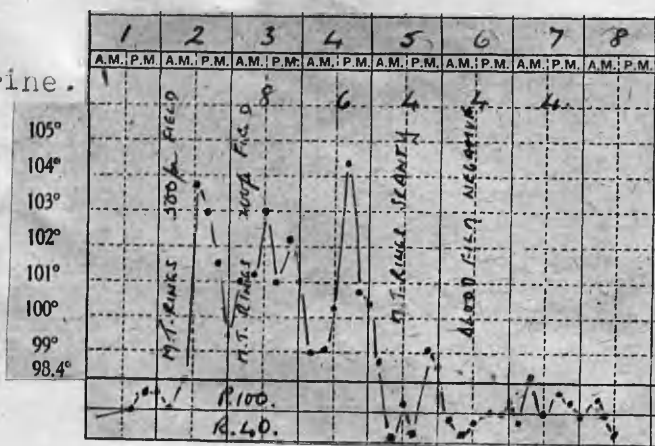 ine.
1 2 3 4 5 6 7 8
A.M. P.M. A.M. P.M. A.M. P.M. A.M. P.M. A.M. P.M. A.M. P.M. A.M. P.M. A.M. P.M.
8 6 4 4 4
105°
104°
103°
102°
101°
100°
99°
98.4°
M.T. RINGS 500/per FIELD
M.T. RINGS 200/p FIELD
M.T. RINGS SCANTY
BLOOD FILM NEGATIVE
P.100.
R.40.